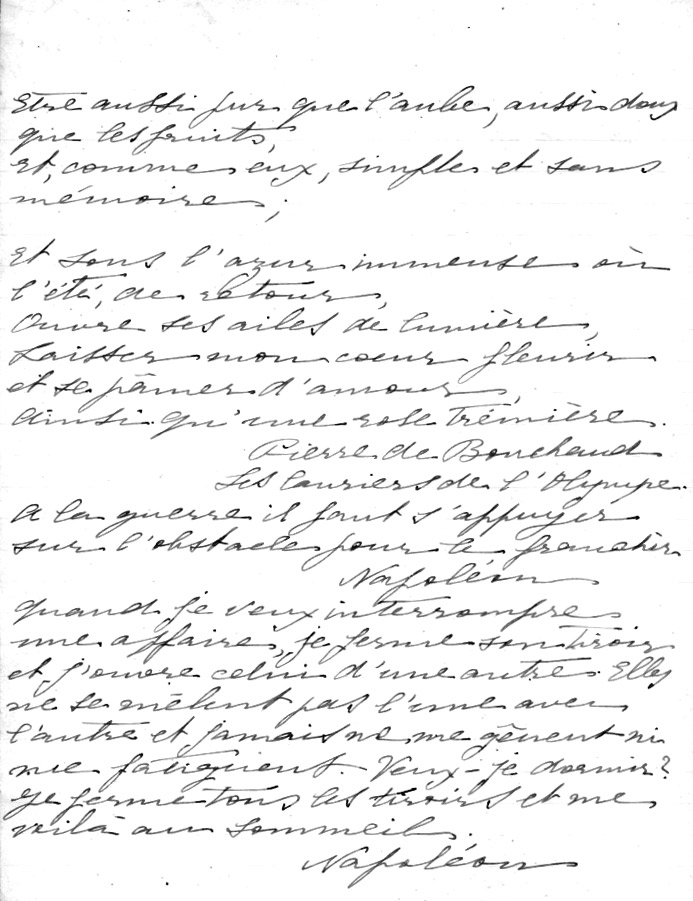 Etre aussi pur que l'aube, aussi doux
que les fruits,
et, comme eux, simple et sans
mémoire ;
Et sous l'azur immense où
l'été, de retour,
Ouvre ses ailes de lumière,
Laisser mon coeur fleurir
et se pâmer d'amour,
Ainsi qu'une rose trémière.
Pierre de Bouchaud
Les lauriers de l'Olympe.
A la guerre il faut s'appuyer
sur l'obstacle pour le franchir
Napoléon
Quand je veux interrompre
une affaire, je ferme son tiroir
et j'ouvre celui d'une autre. Elles
ne se mêlent pas l'une avec
l'autre et jamais ne me gênent ni
me fatiguent. Veux-je dormir ?
Je ferme tous les tiroirs et me
voilà au sommeil.
Napoléon